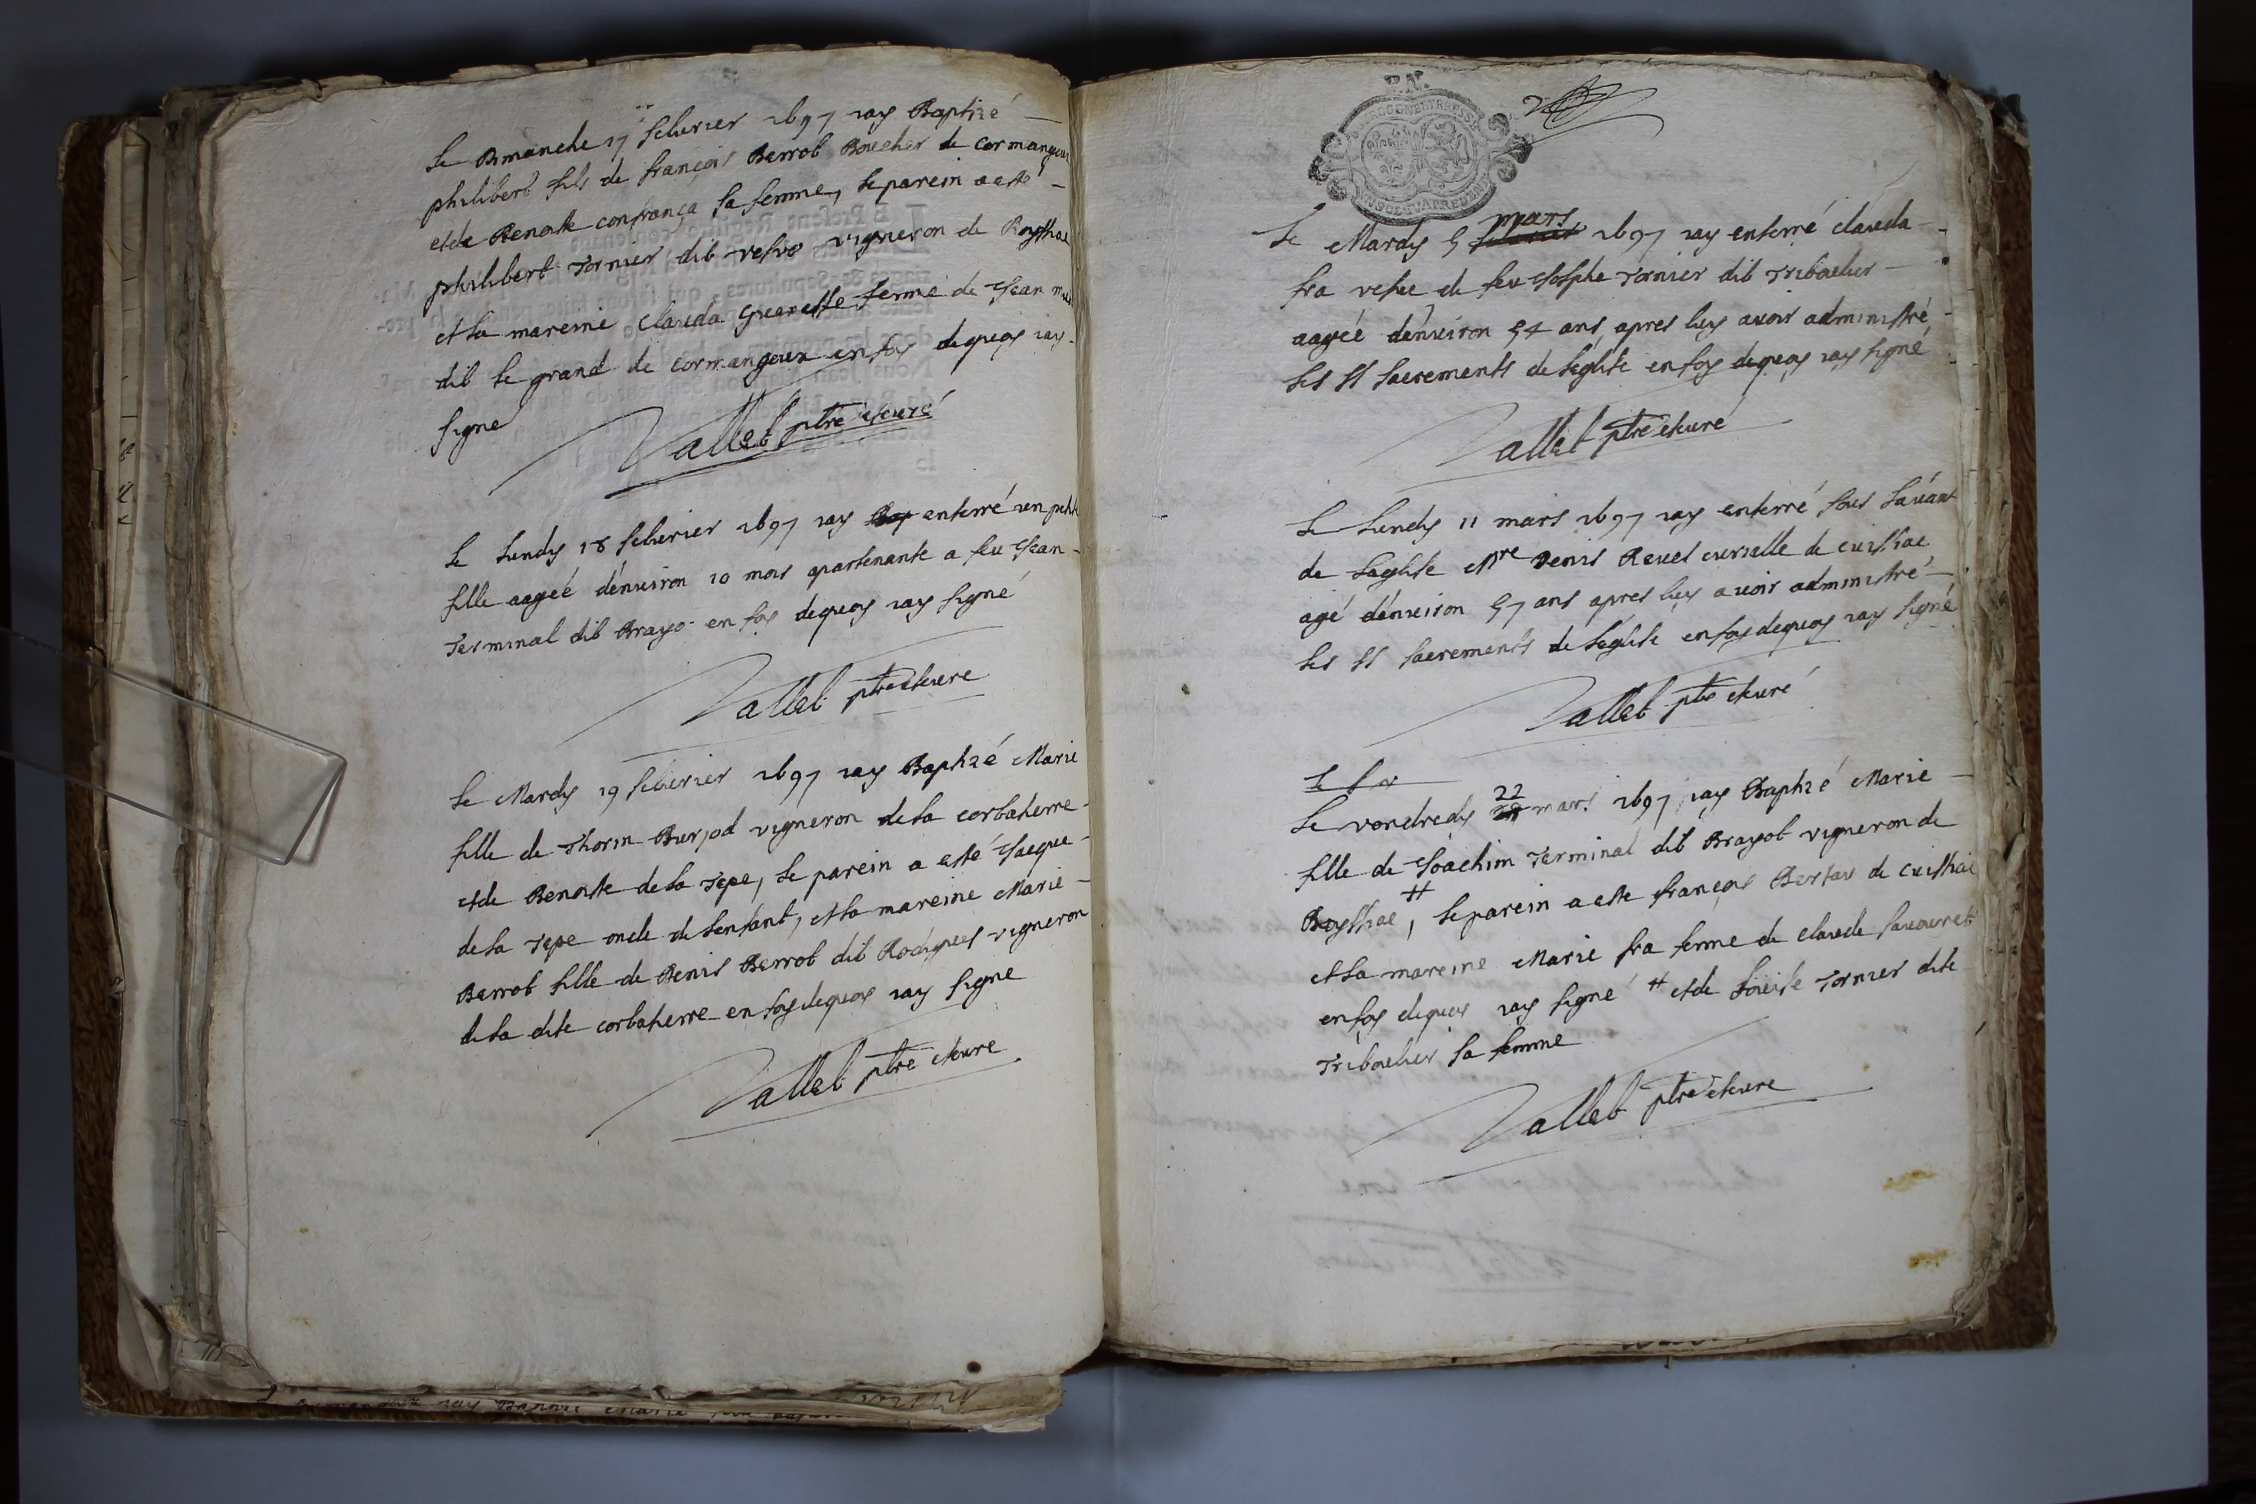 Le Dimanche 17 feburier 1697 iay Baptizé
philibert fils de françois Berrob Boucher de Cormangoux
et de Benoite confrança sa femme, le parein a esté
philibert Tornier dit vesvo vigneron de Roysssiae
et la mareine Clauda femme de Jean
dit le grand de cormangoux en foy dequoy iay
signe
Vallet ptre et curé
Le Lundy 18 feburier 1697 iay enterré un petite
fille aagéé d'enuiron 10 mois apartenante a feu Jean
Terminal dit Brayo en foy dequoy iay signé
Vallet ptre et cure
Le Mardy 19 feburier 1697 iay Baptizé Marie
fille de Thorin Burjod vigneron de la corbaterre
et de Benoite de la Tepe, le parein a esté Jacque
de la Tepe oncle de l'enfant, et la mareine Marie
Berrob fille de Denis Berrob dit Rodigues vigneron
de la dite corbaterre en foy dequoy iay signe
Vallet ptre et cure
P.N.
Le Mardy 5 mars 1697 iay enterré clauda
fra vefue de feu Josphe Tornier dit Triboulier
aagéé d'enuiron 54 ans, apres luy auoir administré
les SS sacrements de l'eglise en foy dequoy iay signé
Vallet ptre et curé
Le Lundy 11 mars 1697 iay enterré sous l'auant
de l'eglise Mre Denis Reuel curialle de cuissiae
agé d'enuiron 57 ans apres luy auoir administré
les SS sacrements de l'eglise en foy dequoy iay signé
Vallet ptre et curé
Le vendredy 22 mars 1697 iay Baptizé Marie
fille de Joachim Terminal dit Brayob vigneron de
Royssiae #, le parein a este françois de cuissiae
et la mareine Marie fra femme de claude sauouret
en foy dequoy iay signé # et de Louise Tornier dite
Triboulier sa femme
Vallet ptre et cure